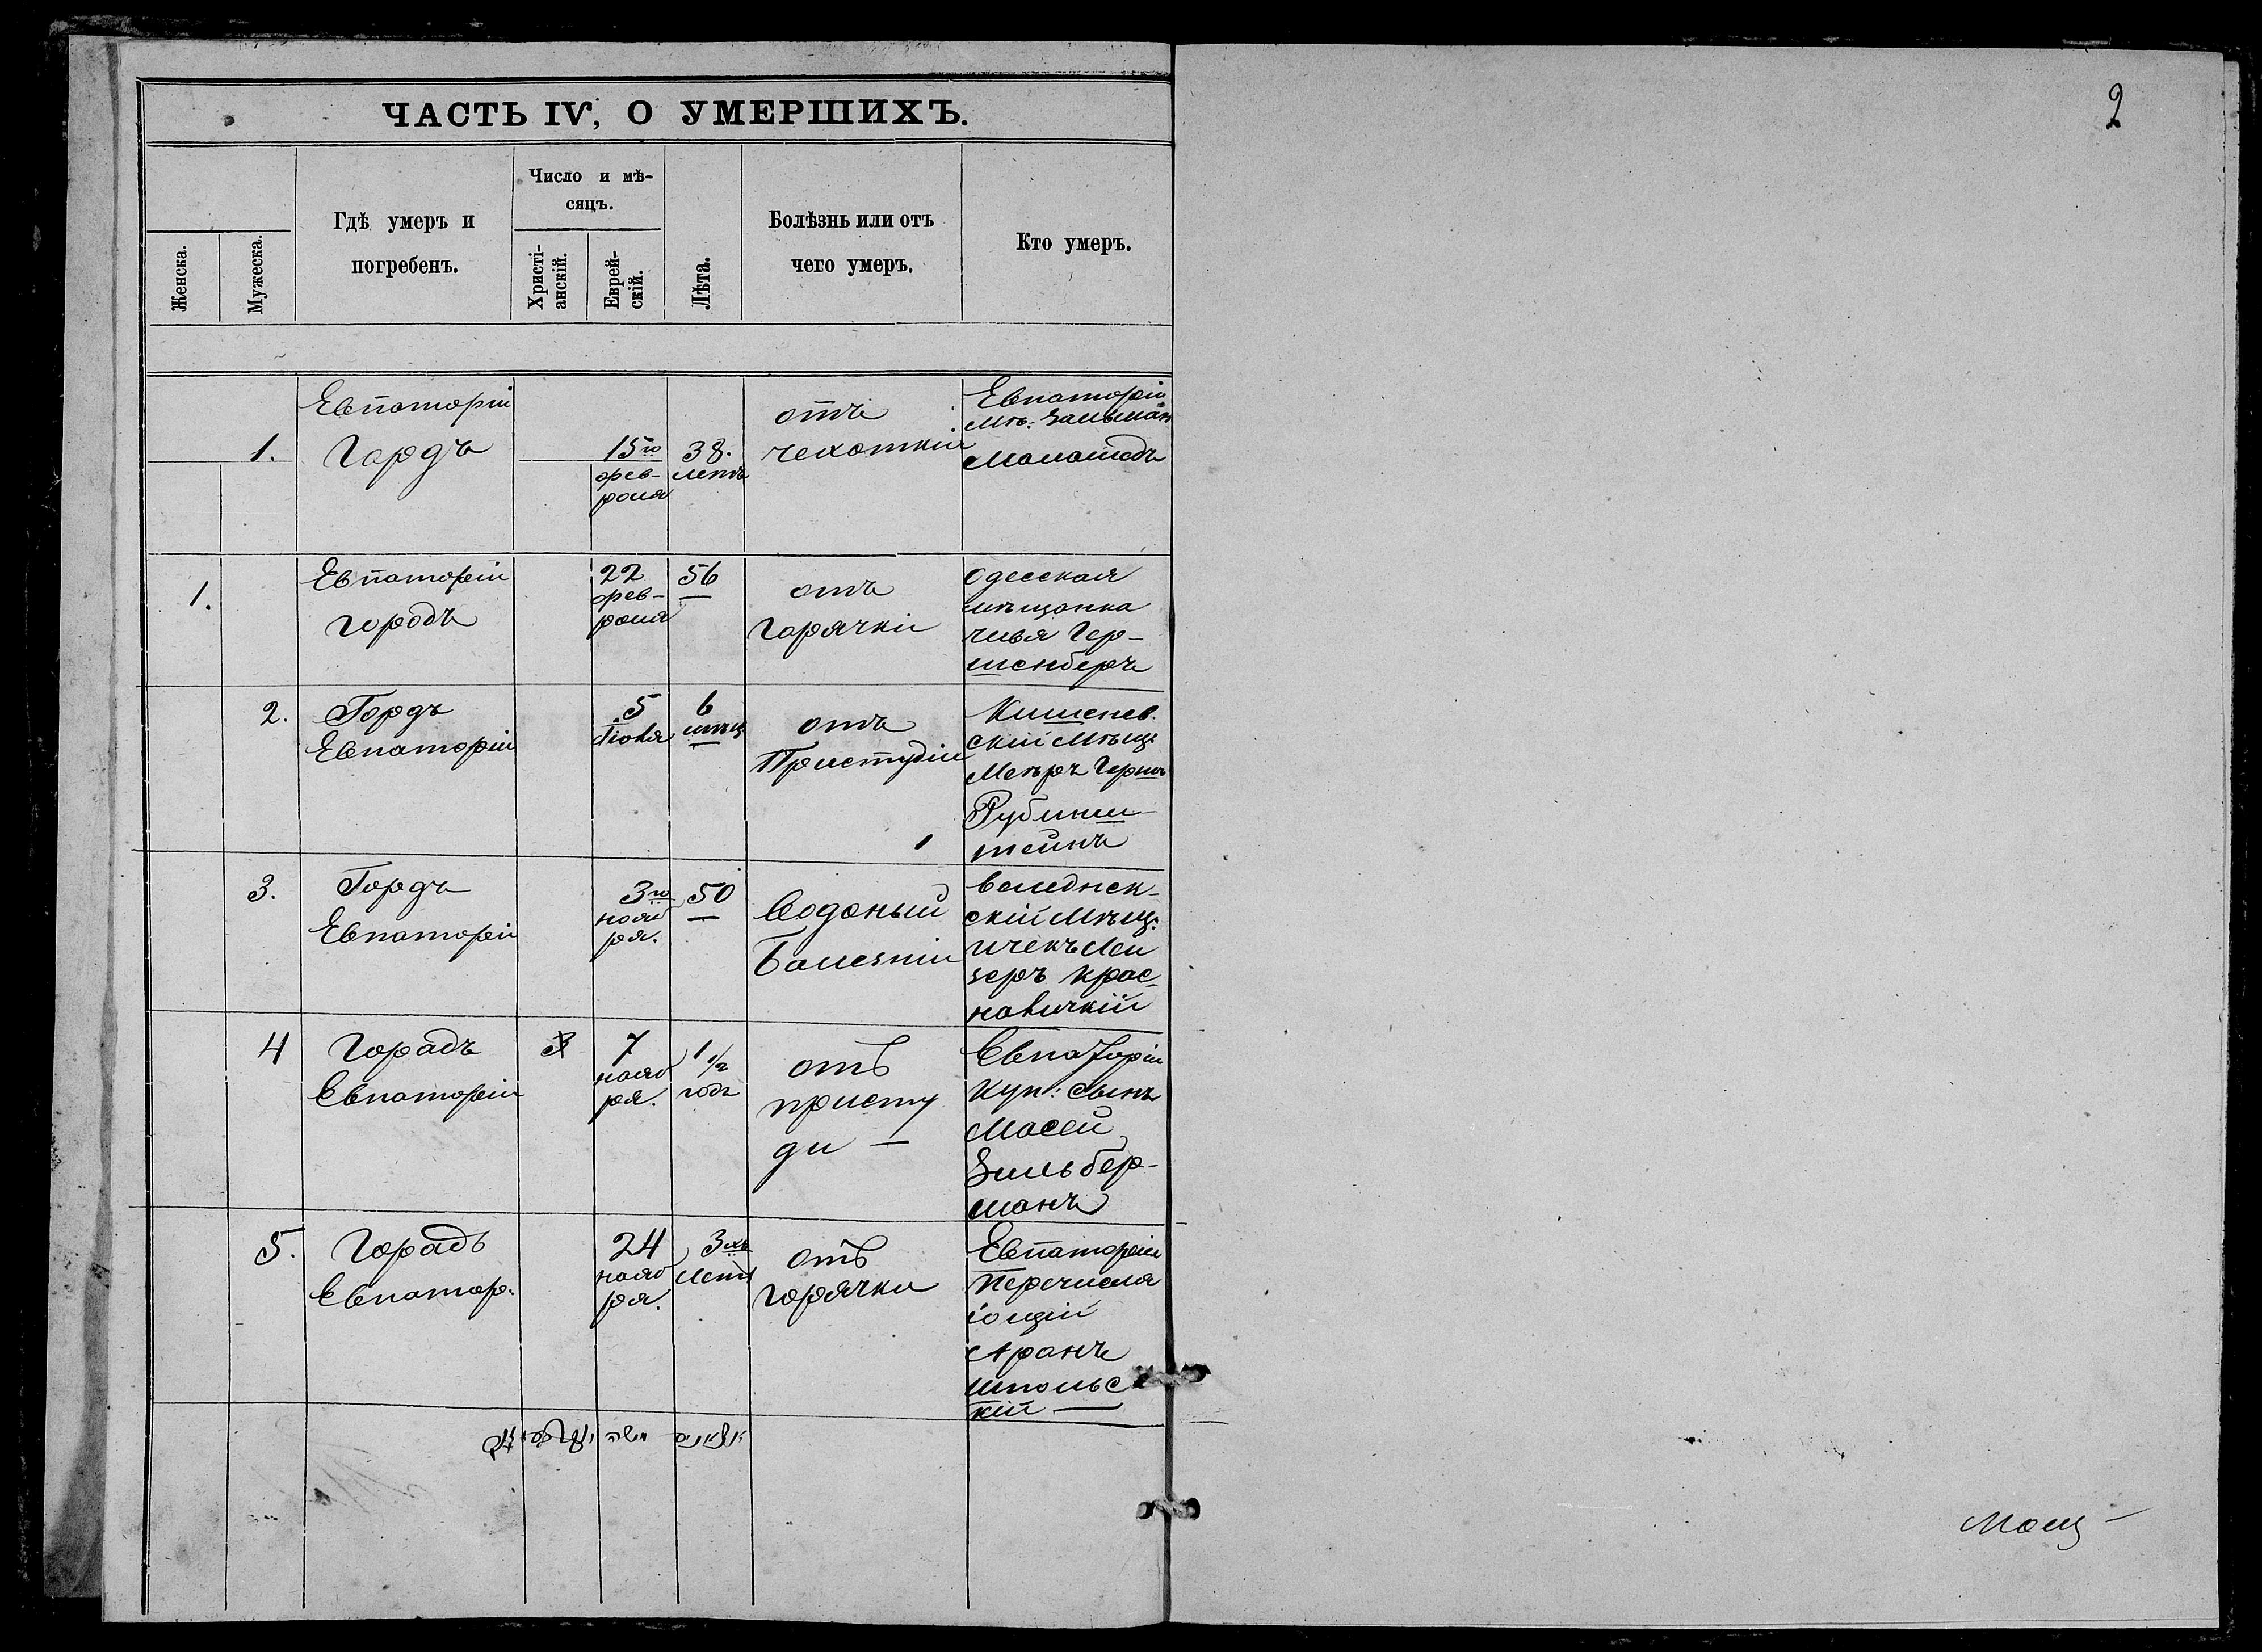 2
ЧАСТЬ IV, О УМЕРШИХЪ.
Женска.
Мужеска.
Гдѣ умеръ и
погребенъ.
Число и мѣ-
сяцъ.
Христі-
анскій.
Еврей-
скій.
Лѣта.
Болѣзнь или отъ
чего умеръ.
Кто умеръ.
1.
Евпаторіи
Гордъ
15го
фев-
роля
38.
летъ
отъ
чехоткіи
Евпаторіи
Мѣ: Зальман
1.
Евпаторіи
городъ
22
фев-
роля
56
отъ
Горячкіи
Одесская
мѣщонка
Гер-
шенберъ
2.
Гордъ
Евпаторіи
5
Іюня
6
мѣщ
отъ
Простудіи
Кишенев.
скій Мѣщ:
Меѣръ Гершъ
Рубинш-
тейнъ
3.
Гордъ
Евпаторіи
3го
нояб
ря.
50
Водоный
Болезніи
скій Мѣщ:
Ичекъ Леи
зеръ Крас-
новичкій
4
Горадъ
Евпаторіи
7
нояб
ря.
1 1/2
годъ
отъ
присту
ди
Евпаторіи
Куп: сынъ
Мосеи
Зильбер-
монъ
5.
Горадъ
Евпатор.
24
нояб
ря.
3хъ
Летъ
отъ
горячки
Евпаторіи
Перечисля
ющіи
Аронъ
Шпольс
кій
משה
Мощ